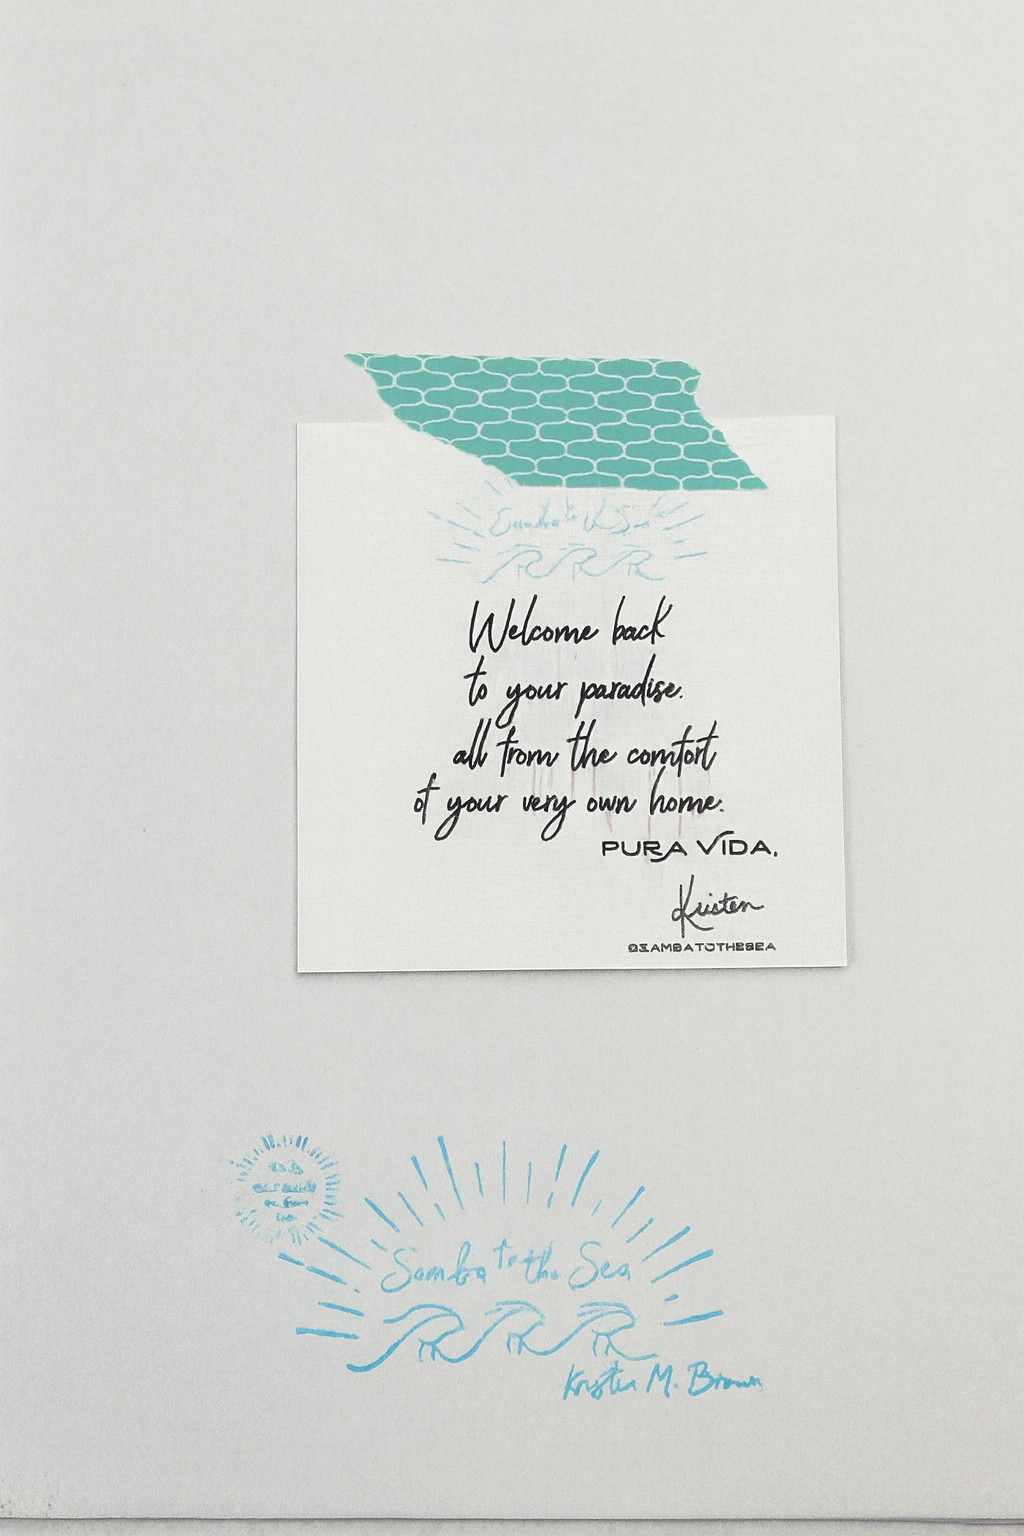 Samba to the Sea
Welcome back
to your paradise.
all from the comfort
of your very own home.
PURA VIDA,
Kristen
@SAMBATOTHESEA
Samba to the Sea
Kristen M. Brown